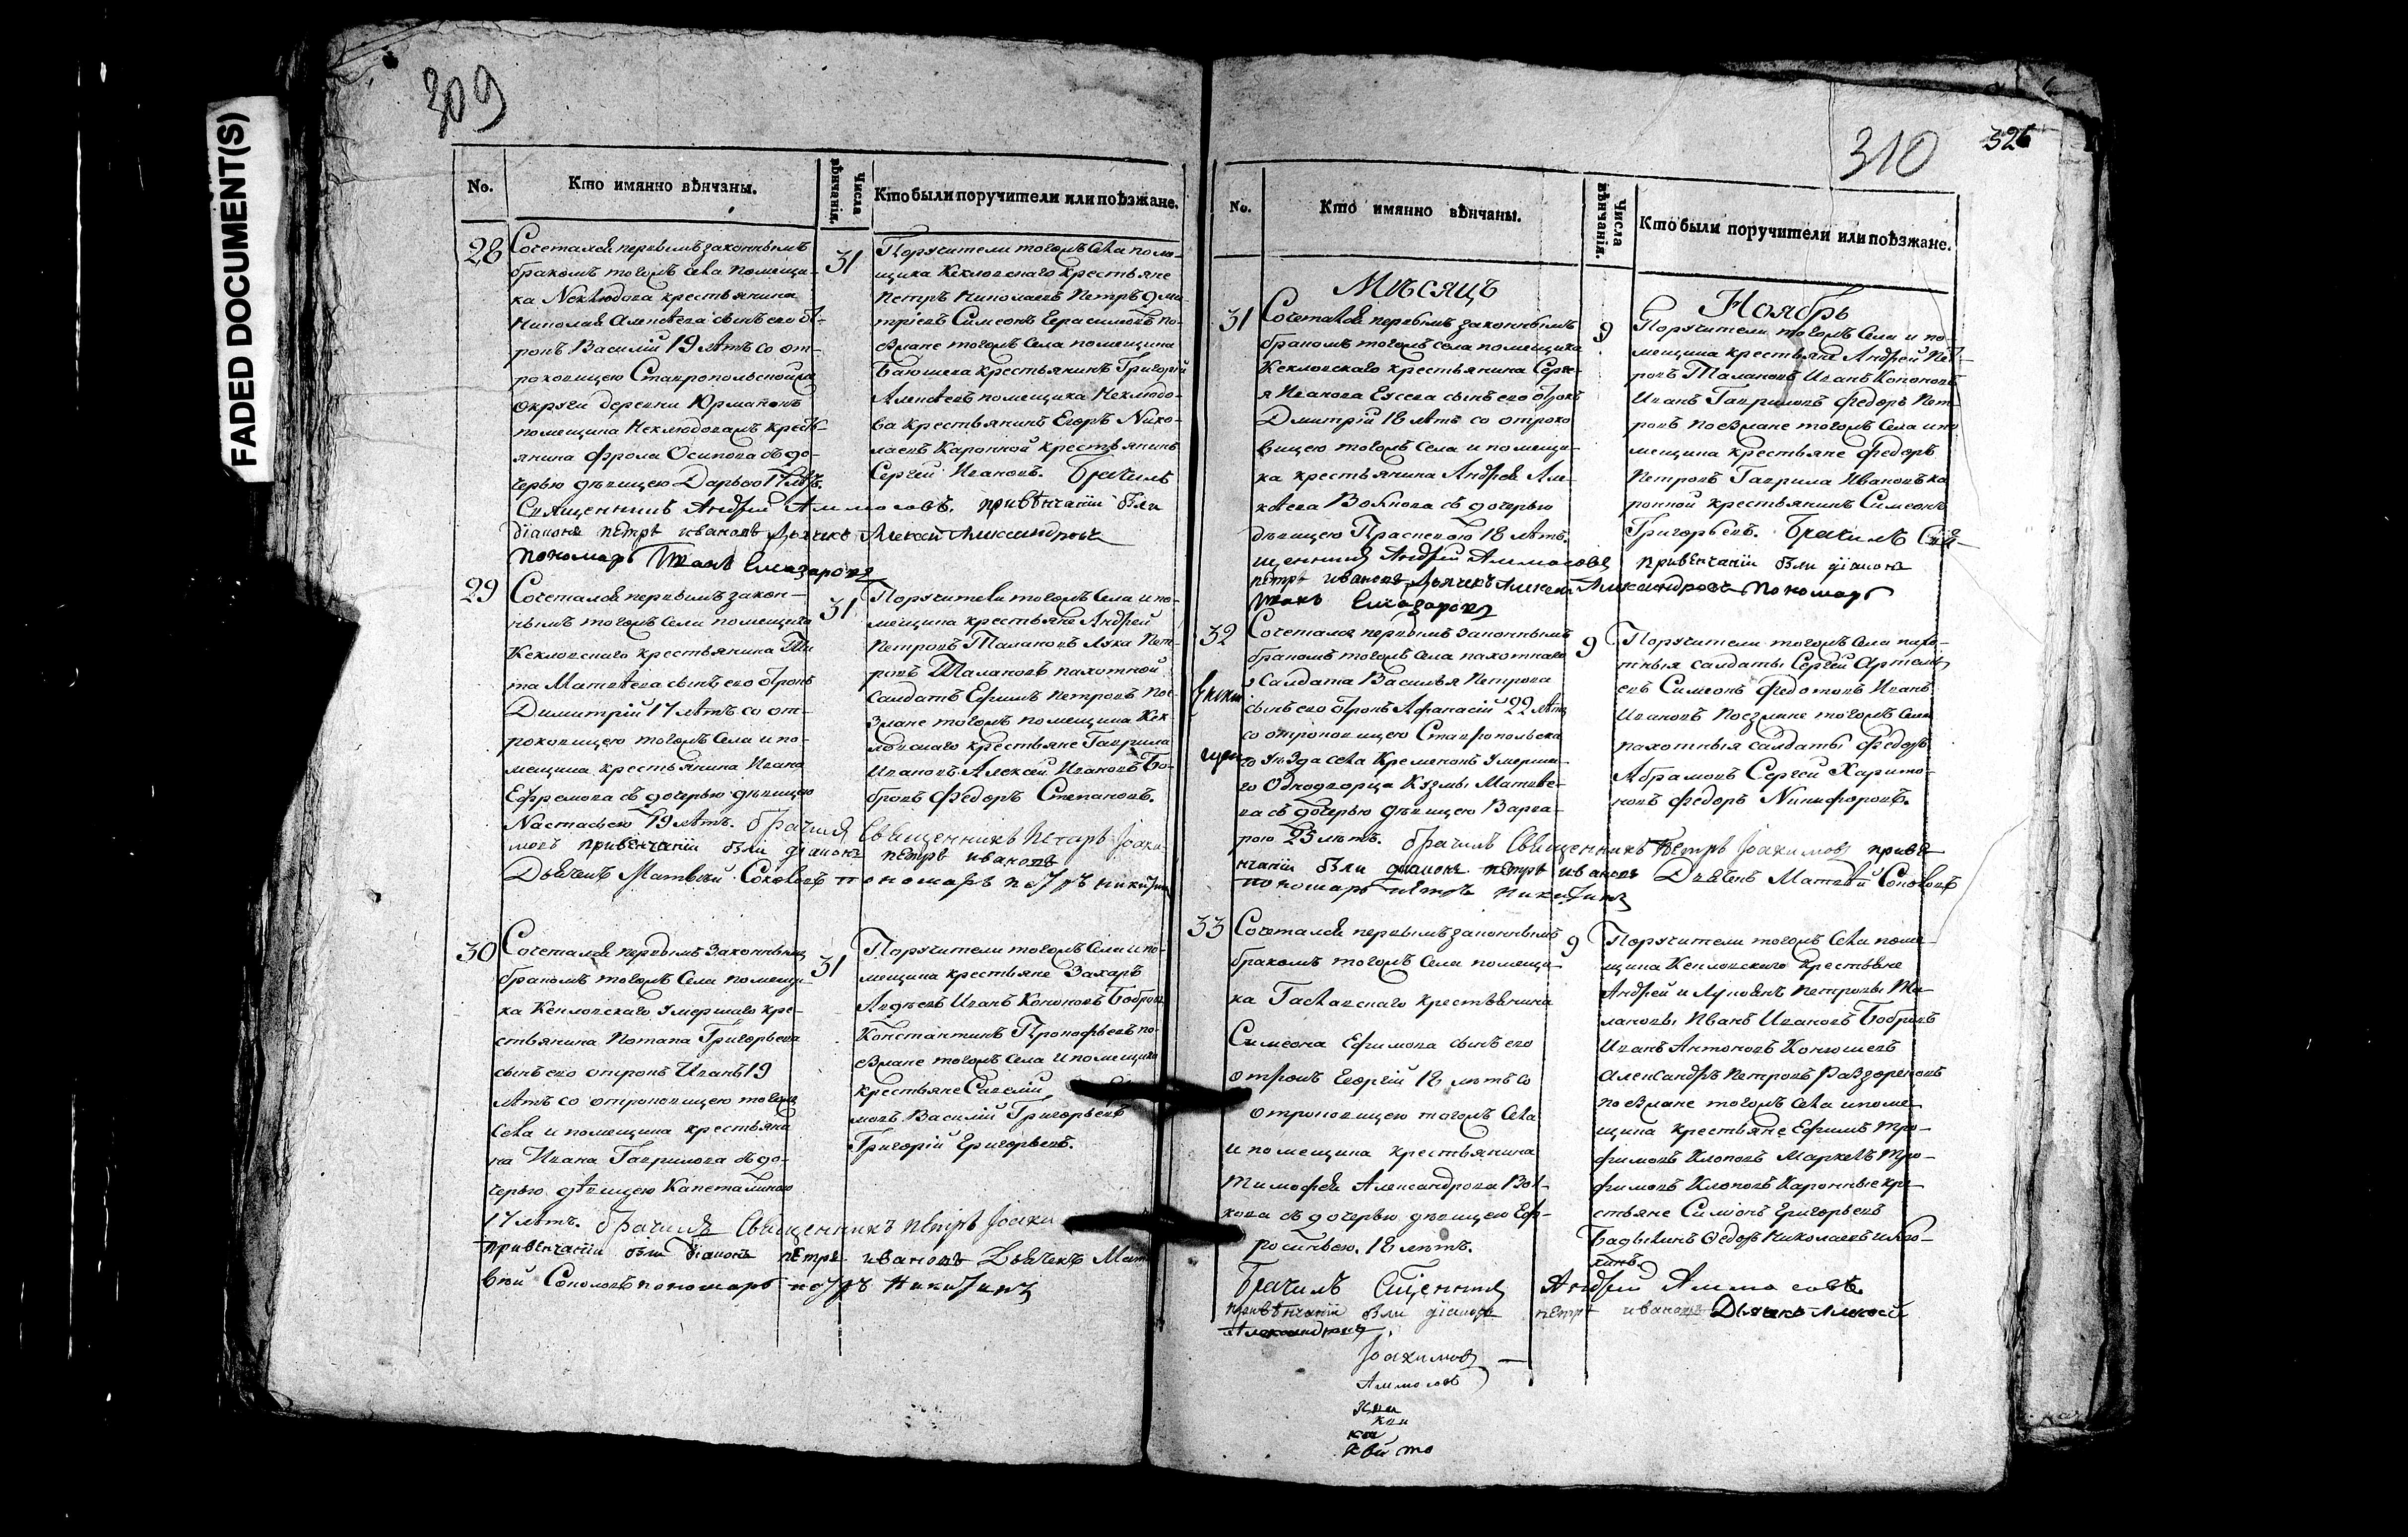 FADED DOCUMENT(S)
309
No.
Кто имянно вѣнчаны.
Числа вѣнчанія.
Кто были поручители или поѣзжане.
28
Сочетался первымъ законнымъ
бракомъ тогожъ села помещи-
ка Неклюдова крестьянина
Николая Алексѣева сынъ его от-
рокъ Василій 19 лѣтъ со от-
роковицею Ставропольской
округи деревни
помещика Неклюдова крестья-
янина Фрола Осипова съ до-
черью дѣвицею Дарьею 17 лѣтъ.
31
Поручители тогожъ села поме-
щика крестьяне
Петръ Николаевъ Петръ Дми-
тріевъ Симеонъ Герасимовъ по-
езжане тогожъ села помещика
крестьянинъ Григорій
Алексѣевъ помещика Неклюдо-
ва крестьянинъ Егоръ Нико-
лаевъ крестьянинъ
Сергей Ивановъ. Брачилъ
Священникъ Андрей Аммосовъ. при вѣнчаніи были
діаконъ петръ ивановъ Дьячекъ Алексей Александровъ
пономарь
29
Сочетался первымъ закон-
нымъ тогожъ села помещика
крестьянина Ти-
та Матвѣева сынъ его отрокъ
Димитрій 17 лѣтъ со от-
роковицею тогожъ села и по-
мещика крестьянина Ивана
Ефремова съ дочерью дѣвицею
Настасьею 19 лѣтъ.
31
Поручители тогожъ села и по-
мещика крестьяне Андрей
Петровъ Талановъ Лука Пет-
ровъ Талановъ пахотной
салдатъ Ефимъ Петровъ пое-
зжане тогожъ помещика
крестьяне Гаврила
Ивановъ Алексей Ивановъ Бо-
бровъ Федоръ Степановъ.
брачилъ Священникъ Петръ Іоаки-
мовъ при вѣнчаніи были діаконъ петръ ивановъ
Дьячекъ Матвей Соколовъ пономарь петръ никитинъ
30
Сочетался первымъ законнымъ
бракомъ тогожъ села помещи-
ка умершаго кре-
стьянина Потапа Григорьева
сынъ его отрокъ Иванъ 19
лѣтъ со отроковицею тогожъ
села и помещика крестьяни-
на Ивана Гаврилова съ до-
черью дѣвицею Капеталиною
17 лѣтъ.
31
Поручители тогожъ села и по-
мещика крестьяне Захаръ
Авдѣевъ Иванъ Кононовъ Бобровъ
Константинъ Прокофьевъ по-
езжане тогожъ села и помещика
крестьяне Савелій
мовъ Василій Григорьевъ
Григорій Григорьевъ.
брачилъ Священникъ петръ Іоаки
при вѣнчаніи были діаконъ петръ ивановъ Дьячекъ Мат
вей Соколовъ пономарь петръ никитинъ
310
326
No.
Кто имянно вѣнчаны.
Числа вѣнчанія.
Кто были поручители или поѣзжане.
Мѣсяцъ
Ноябрь
31
Сочетался первымъ законнымъ
бракомъ тогожъ села помещика
крестьянина Серге-
я Иванова сынъ его отрокъ
Дмитрій 18 лѣтъ со отроко-
вицею тогожъ села и помещи-
ка крестьянина Андрея Але-
ксѣева съ дочерью
дѣвицею Прасковьею 18 лѣтъ.
9
Поручители тогожъ села и по-
мещика крестьяне Андрей Пет-
ровъ Талановъ Иванъ Кононовъ
Иванъ Гавриловъ Федоръ Пет-
ровъ поезжане тогожъ села и по-
мещика крестьяне Федоръ
Петровъ Гаврила Ивановъ
крестьянинъ Симеонъ
Григорьевъ. Брачилъ Свя-
щенникъ Андрей Аммосовъ при вѣнчаніи были діаконъ
петръ ивановъ Дьячекъ Алексей Александровъ пономарь
32
Сочетался первымъ законнымъ
бракомъ тогожъ села пахотнаго
салдата Василья Петрова
сынъ его отрокъ Афанасій 22 лѣтъ
со отроковицею Ставропольска-
го уѣзда села Кременокъ умерша-
го однодворца Кузмы Матвее-
ва съ дочерью дѣвицею Варва-
рою 23 лѣтъ.
9
Поручители тогожъ села пахо-
тныя салдаты Сергей Артемь-
евъ Симеонъ Федотовъ Иванъ
Ивановъ поезжане тогожъ села
пахотныя салдаты Федоръ
Абрамовъ Сергей Харито-
новъ Федоръ Никифоровъ.
брачилъ Священникъ Петръ Іоакимовъ при вѣ-
нчаніи были діаконъ петръ ивановъ Дьячекъ Матвей Соколовъ
пономарь петръ никитинъ
33
Сочетался первымъ законнымъ
бракомъ тогожъ села помещи-
ка крестьянина
Симеона Ефимова сынъ его
отрокъ Георгій 18 лѣтъ со
отроковицею тогожъ села
и помещика крестьянина
Тимофея Александрова Вол-
кова съ дочерью дѣвицею Еф-
росиньею. 18 лѣтъ.
9
Поручители тогожъ села поме-
щика крестьяне
Андрей и Лукоянъ Петровы Та-
лановы Иванъ Ивановъ Бобровъ
Иванъ Антоновъ
Александръ Петровъ
поезжане тогожъ села и поме-
щика крестьяне Ефимъ Тро-
фимовъ Клоповъ Маркелъ Тро-
фимовъ Клоповъ кре-
стьяне Симіонъ Григорьевъ
Федоръ Николаевъ
Брачилъ Священникъ Андрей Аммосовъ
при вѣнчаніи были діаконъ петръ ивановъ Дьячекъ Алексей
Александровъ
Іоакимовъ
Аммосовъ